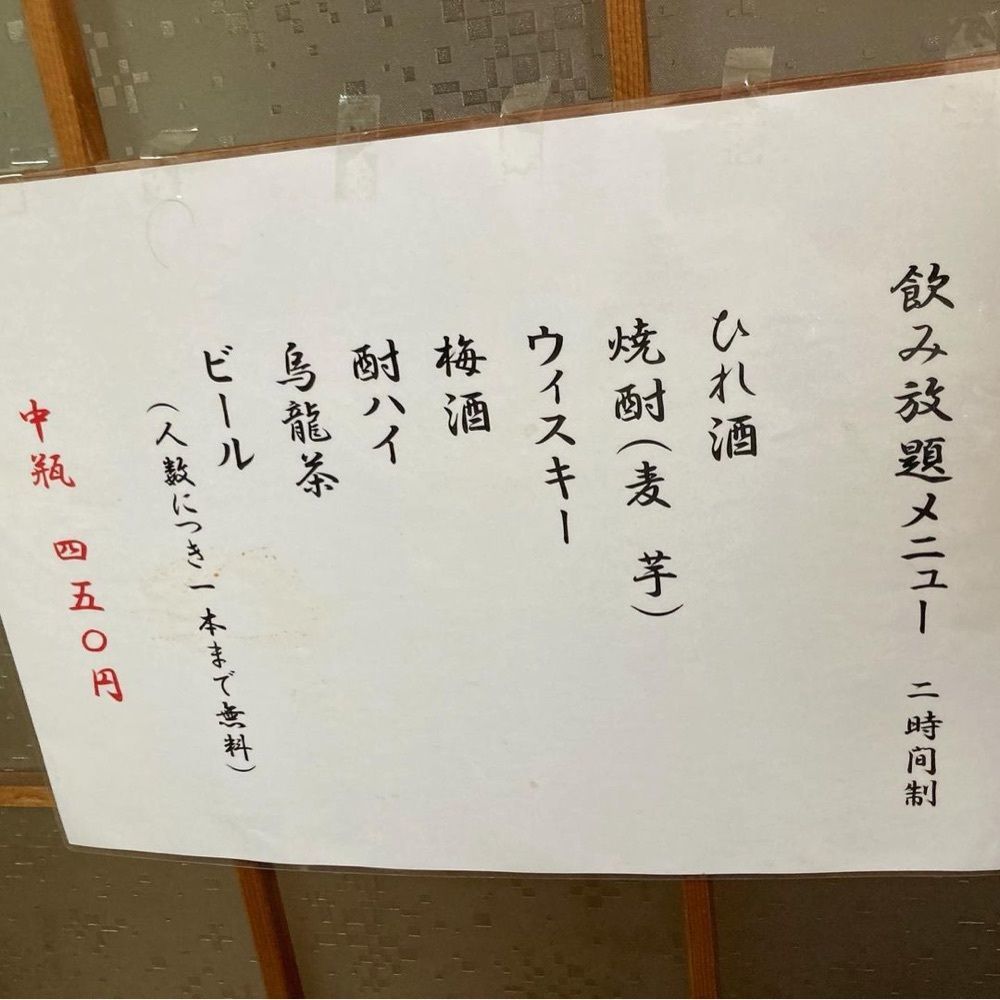 飲み放題メニュー 二時間制
ひれ酒
焼酎(麦 芋)
ウィスキー
梅酒
酎ハイ
烏龍茶
ビール
(人数につき一本まで無料)
中瓶 四五〇円